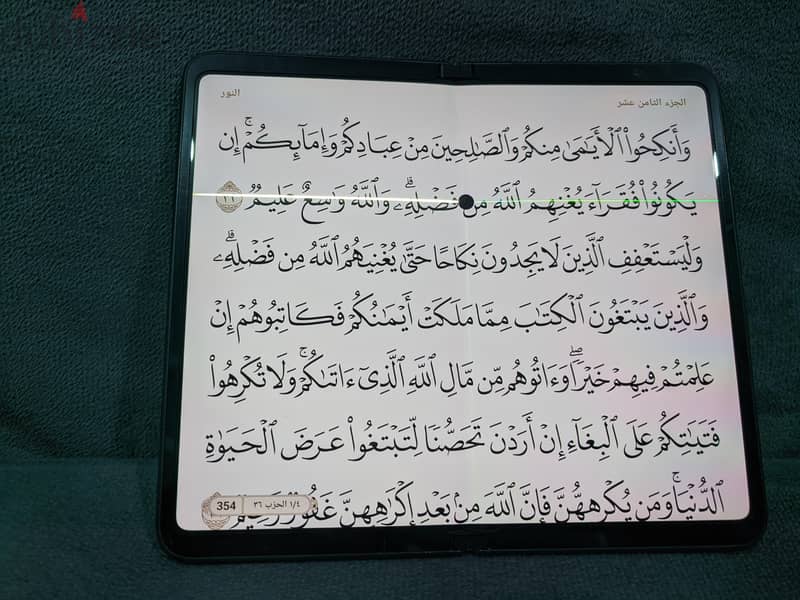 الجزء الثامن عشر
النور
وَأَنكِحُوا۟ ٱلْأَيَـٰمَىٰ مِنكُمْ وَٱلصَّـٰلِحِينَ مِنْ عِبَادِكُمْ وَإِمَآئِكُمْ ۚ إِن
يَكُونُوا۟ فُقَرَآءَ يُغْنِهِمُ ٱللَّهُ مِن فَضْلِهِۦ ۗ وَٱللَّهُ وَٰسِعٌ عَلِيمٌ
وَلْيَسْتَعْفِفِ ٱلَّذِينَ لَا يَجِدُونَ نِكَاحًا حَتَّىٰ يُغْنِيَهُمُ ٱللَّهُ مِن فَضْلِهِۦ ۗ
وَٱلَّذِينَ يَبْتَغُونَ ٱلْكِتَـٰبَ مِمَّا مَلَكَتْ أَيْمَـٰنُكُمْ فَكَاتِبُوهُمْ إِنْ
عَلِمْتُمْ فِيهِمْ خَيْرًا ۖ وَءَاتُوهُم مِّن مَّالِ ٱللَّهِ ٱلَّذِىٓ ءَاتَىٰكُمْ ۚ وَلَا تُكْرِهُوا۟
فَتَيَـٰتِكُمْ عَلَى ٱلْبِغَآءِ إِنْ أَرَدْنَ تَحَصُّنًا لِّتَبْتَغُوا۟ عَرَضَ ٱلْحَيَوٰةِ
ٱلدُّنْيَا ۚ وَمَن يُكْرِههُّنَّ فَإِنَّ ٱللَّهَ مِنۢ بَعْدِ إِكْرَٰهِهِنَّ غَفُورٌ رَّحِيمٌ
١/٤ الحزب ٣٦
354